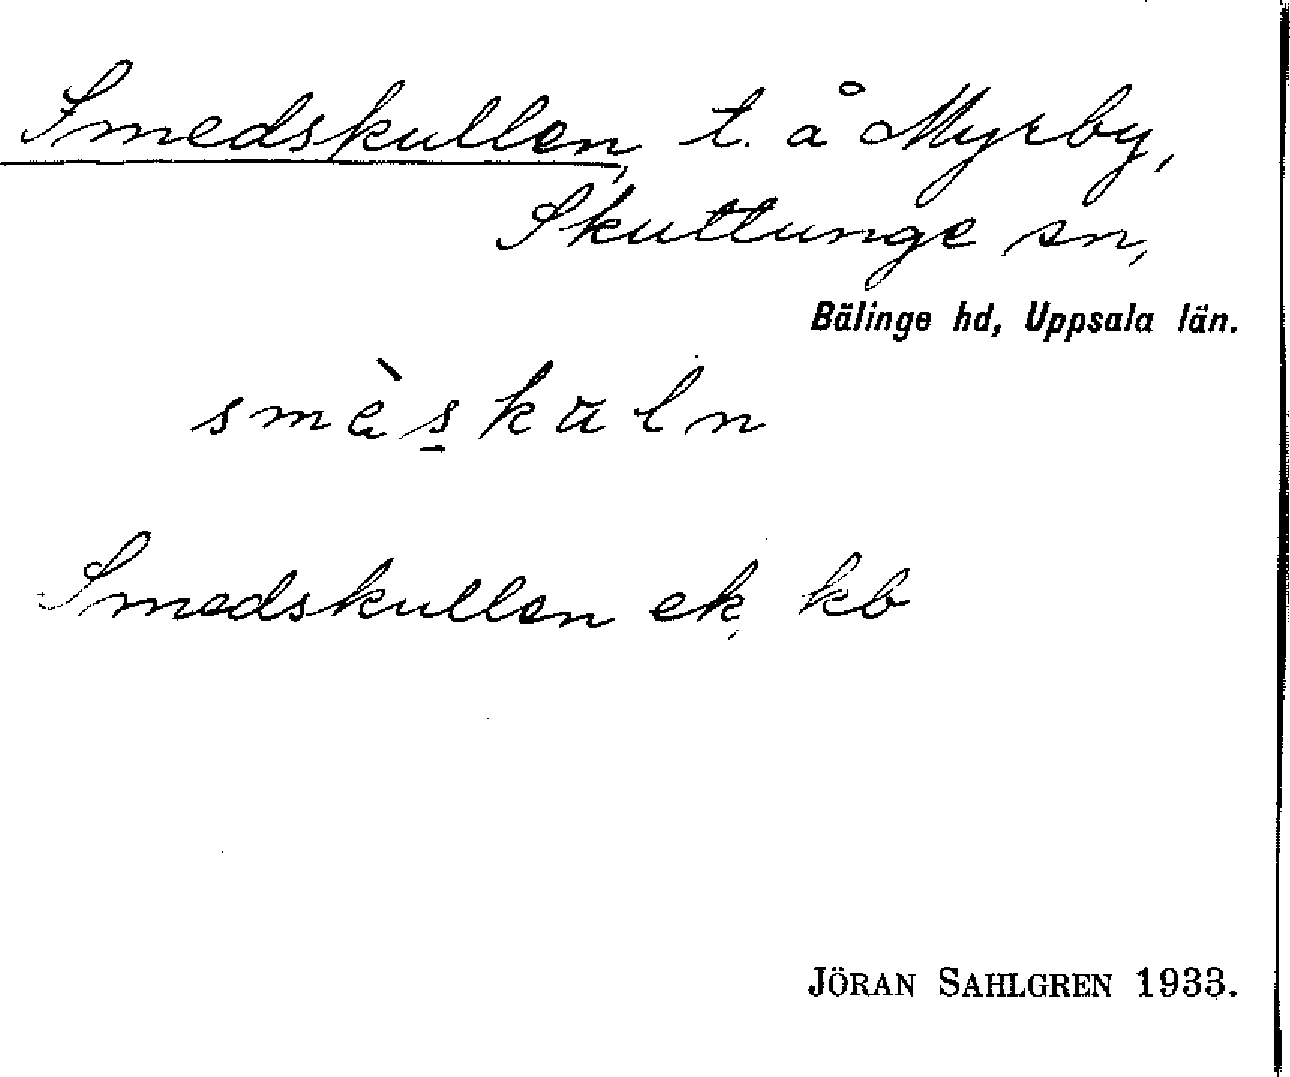 Smedskullen, t. å Myrby,
Skuttunge sn,
Bälinge hd, Uppsala län.
Smedskullen ek, kb
JÖRAN SAHLGREN 1933.